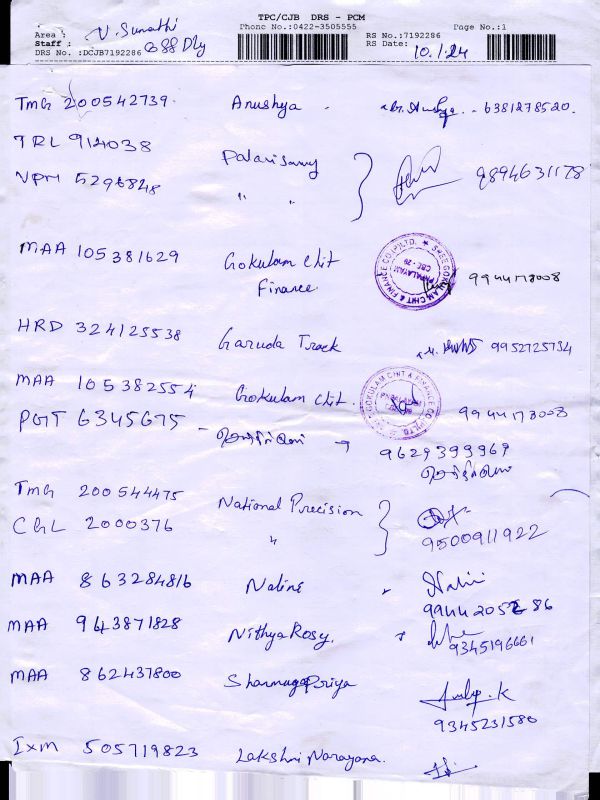 TPC/CJB DRS - PCM
Area : V. Sumathi
Phone No.:0422-3505555
RS No.:7192286
Page No.:1
Staff : Dly
RS Date: 10.1.24
DRS No. :DCJB7192286
TMG 200542739. Anushya - 6381278520.
TRL 914038 Palanisamy 9894631178
VPM 5296848 " "
MAA 105381629 Gokulam Chit Finance 9944173008
SREE GOKULAM CHIT & FINANCE CO.(P)LTD.
HRD 324125538 Garuda Track 9952725734
MAA 105382554 Gokulam Chit. 9944173008
GOKULAM CHIT & FINANCE CO.(P)LTD.
PGT 6345675 - → 9629399969
TMG 200544475 National Precision
CGL 2000376 " 9500911922
MAA 863284816 Nalini Nalini
MAA 943871828 Nithya Rosy. 9345196661
MAA 862437800 Shanmugapriya
9345231580
IXM 505719823 Lakshmi Narayana.